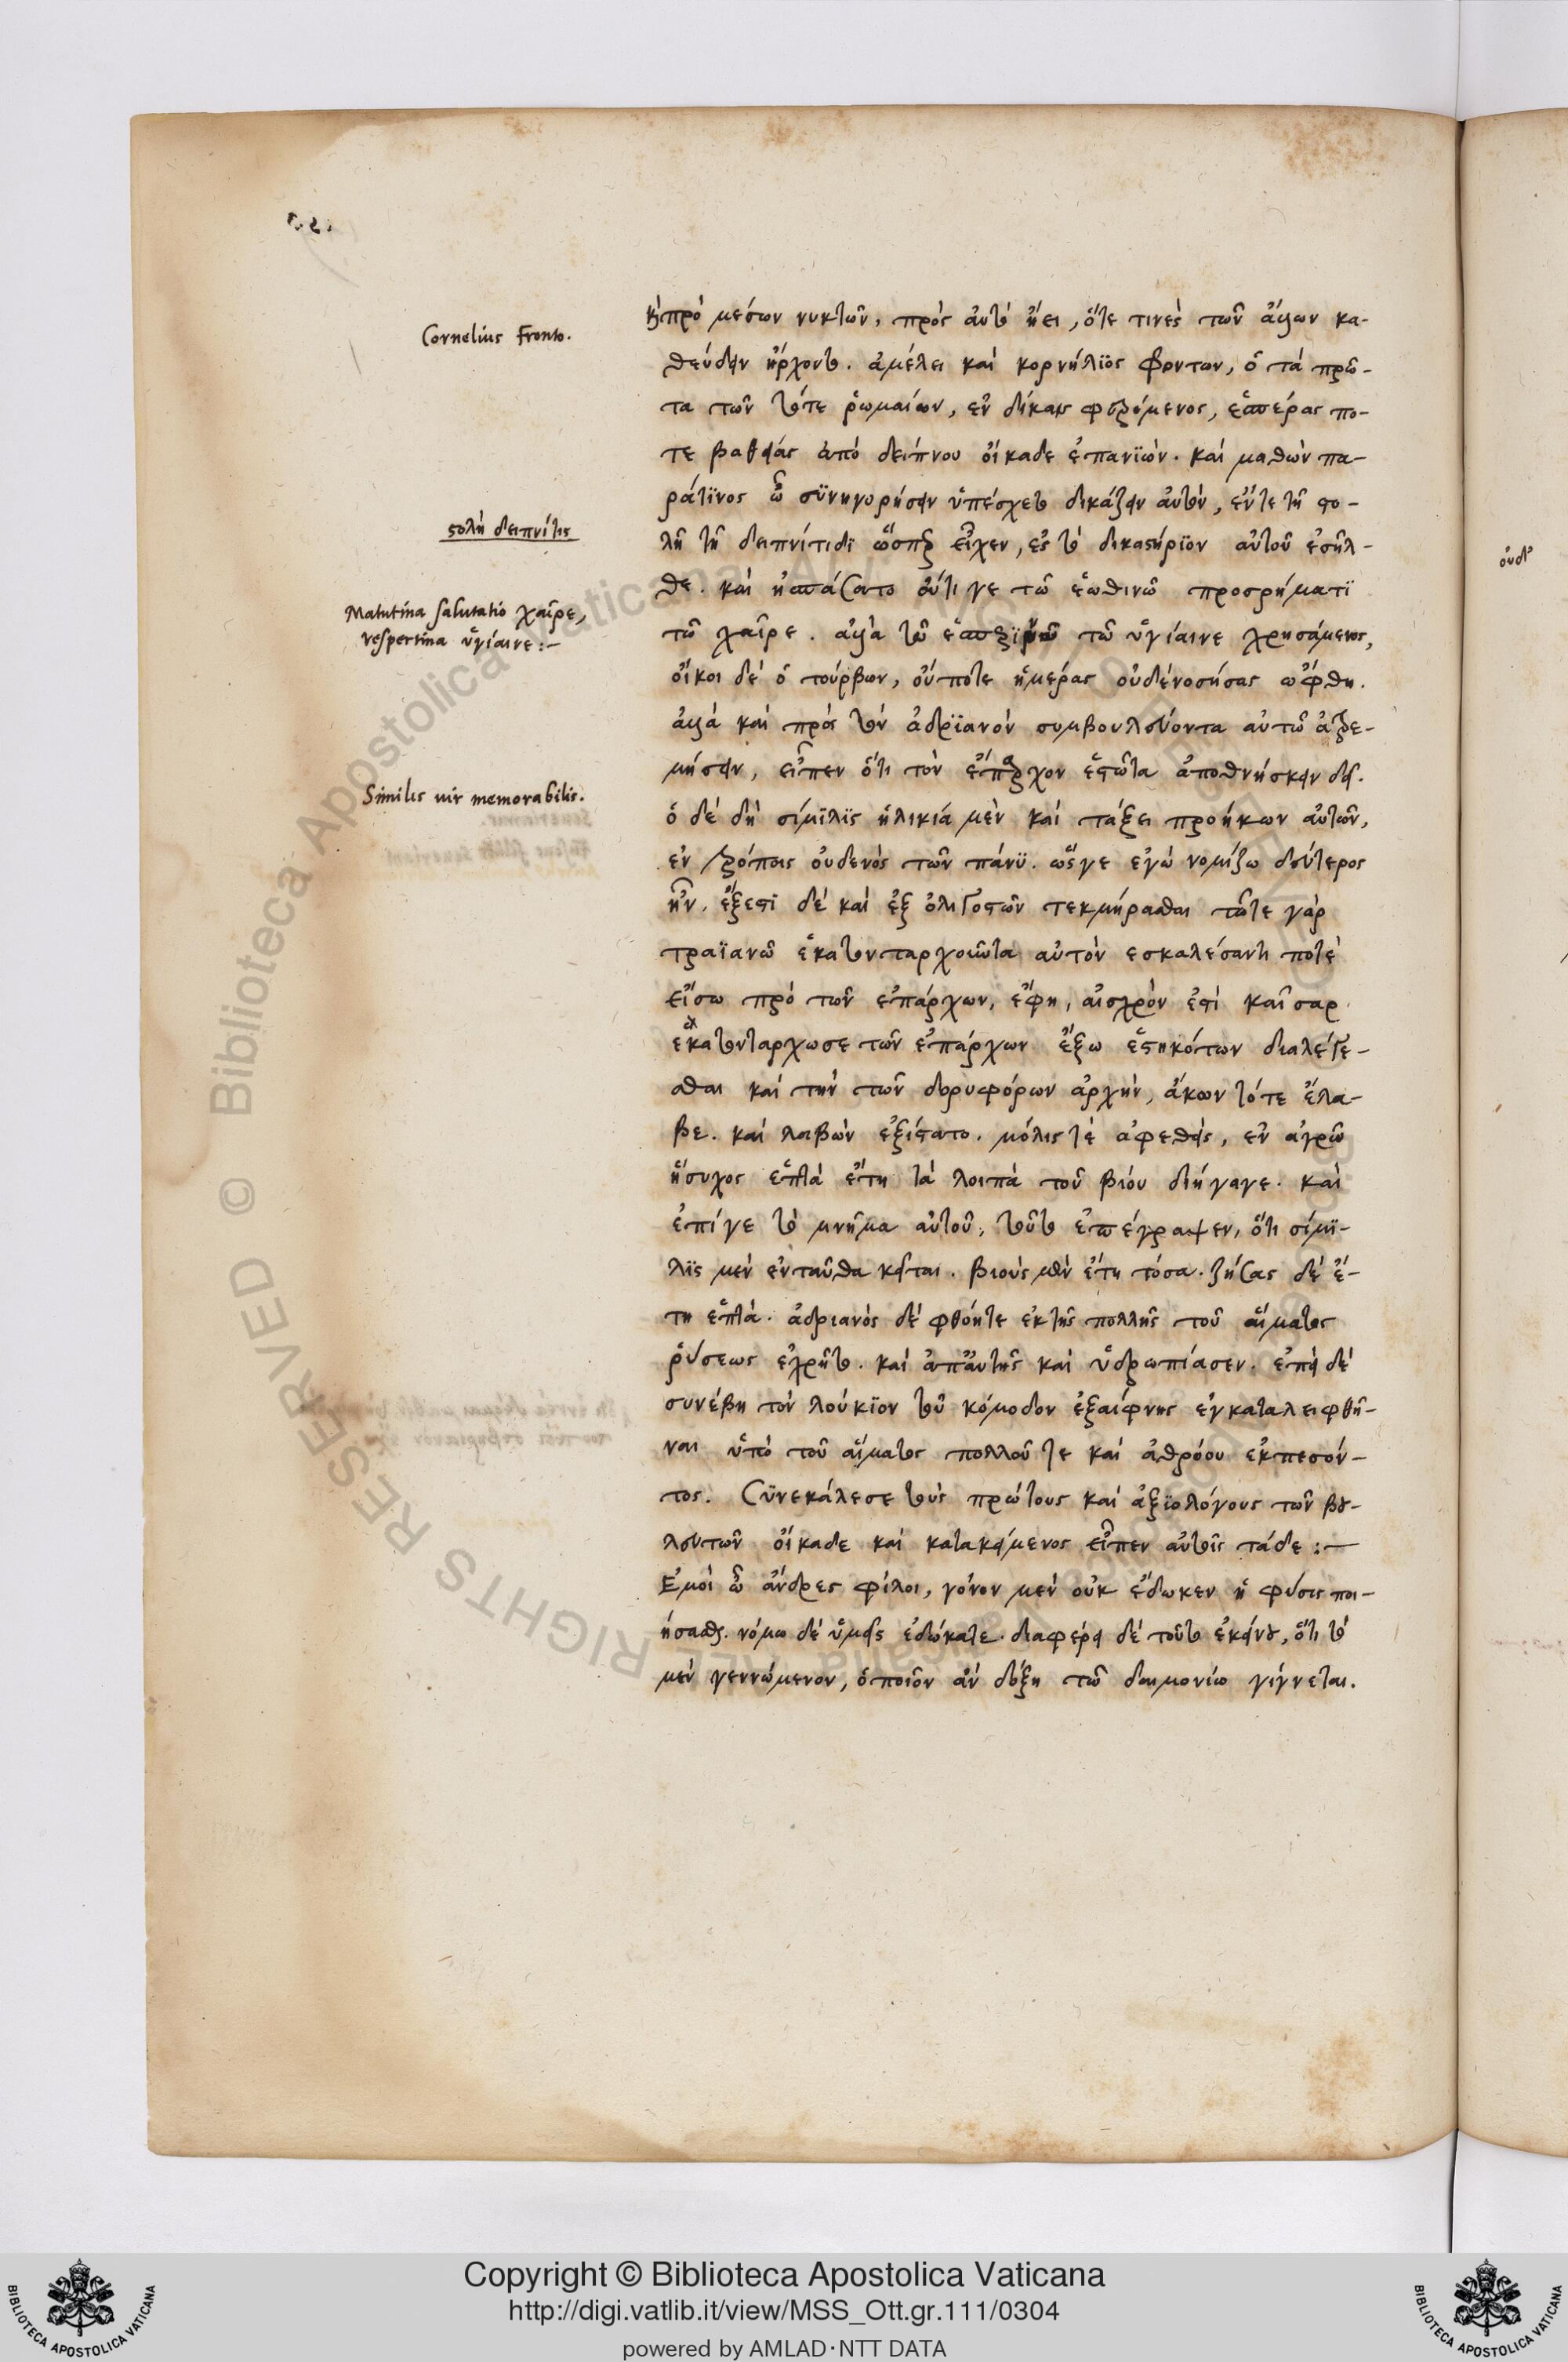 Cornelius Fronto.
στολὴ δειπνίτις
Matutina salutatio χαῖρε,
vespertina ὑγίαινε:-
Similis vir memorabilis.
κἢ πρὸ μέσων νυκτῶν, πρὸς αὐτὸ ᾔει, ὅτε τινὲς τῶν ἄλλων κα-
θεύδειν ἤρχοντο. ἀμέλει καὶ κορνήλϊος φρόντων, ὁ τὰ πρῶ-
τα τῶν τότε ῥωμαίων, ἐν δίκαις φερόμενος, ἑσπέρας πο-
τε βαθείας ἀπὸ δείπνου οἴκαδε ἐπανϊών. καὶ μαθὼν πα-
ράτϊνος ᾧ συνηγορήσειν ὑπέσχετο δικάζειν αὐτόν, ἔν τε τῇ στο-
λῇ τῇ δειπνίτιδϊ ὥσπερ εἶχεν, ἐς τὸ δικαστήρϊον αὐτοῦ ἐσῆλ-
θε. καὶ ἠσπάσατο οὔτι γε τῷ ἑωθινῷ προσρήματϊ
τῷ χαῖρε. ἀλλὰ τῷ ἑσπερϊνῷ τῷ ὑγίαινε χρησάμενος,
οἴκοι δὲ ὁ τούρβων, οὔποτε ἡμέρας οὐδὲ νοσήσας ὤφθη.
ἀλλὰ καὶ πρὸς τὸν ἀδρϊανὸν συμβουλεύοντα αὐτῷ ἀτρε-
μήσειν, εἶπεν ὅτι τὸν ἔπαρχον ἑστῶτα ἀποθνήσκειν δεῖ.
ὁ δὲ δὴ σίμϊλϊς ἡλικίᾳ μὲν καὶ τάξει προήκων αὐτῶν,
ἐν τρόποις οὐδενὸς τῶν πάνϋ. ὥς γε ἐγὼ νομίζω δεύτερος
ἦν. ἔξεστϊ δὲ καὶ ἐξ ὀλιγοστῶν τεκμήρασθαι τῷ τε γὰρ
τραϊανῷ ἑκατονταρχοῦντα αὐτὸν ἐσκαλέσαντι ποτὲ
εἴσω πρὸ τῶν ἐπάρχων, ἔφη, αἰσχρόν ἐστι καῖσαρ
ἑκατοντάρχῳ σε τῶν ἐπάρχων ἔξω ἑστηκότων διαλέγε-
σθαι καὶ τὴν τῶν δορυφόρων ἀρχήν, ἄκων τότε ἔλα-
βε. καὶ λαβὼν ἐξίστατο. μόλις τὲ ἀφεθείς, ἐν ἀγρῷ
ἥσυχος ἑπτὰ ἔτη τὰ λοιπὰ τοῦ βίου διήγαγε. καὶ
ἐπί γε τὸ μνῆμα αὐτοῦ, τοῦτο ἐπέγραψεν, ὅτι σίμϊ-
λϊς μὲν ἐνταῦθα κεῖται. βιοὺς μὲν ἔτη τόσα. ζήσας δὲ ἔ-
τη ἑπτά. ἀδριανὸς δὲ φθόῃ τε ἐκ τῆς πολλῆς τοῦ αἵματος
ῥύσεως ἐχρῆτο. καὶ ἀπ' αὐτῆς καὶ ὑδρωπίασεν. ἐπεὶ δὲ
συνέβη τὸν λούκϊον τὸν κόμοδον ἐξαίφνης ἐγκαταλειφθῆ-
ναι ὑπὸ τοῦ αἵματος πολλοῦ τε καὶ ἀθρόου ἐκπεσόν-
τος. Συνεκάλεσε τοὺς πρώτους καὶ ἀξϊολόγους τῶν βου-
λευτῶν οἴκαδε καὶ κατακείμενος εἶπεν αὐτοῖς τάδε :-
Ἐμοὶ ὦ ἄνδρες φίλοι, γόνον μὲν οὐκ ἔδωκεν ἡ φύσις ποι-
ήσασθαι. νόμῳ δὲ ὑμεῖς ἐδώκατε. διαφέρει δὲ τοῦτο ἐκείνου, ὅτι τὸ
μὲν γεννώμενον, ὁποῖον ἂν δόξῃ τῷ δαιμονίῳ γίγνεται.
οὐδ'
Copyright © Biblioteca Apostolica Vaticana
http://digi.vatlib.it/view/MSS_Ott.gr.111/0304
powered by AMLAD·NTT DATA
BIBLIOTECA APOSTOLICA VATICANA
BIBLIOTECA APOSTOLICA VATICANA